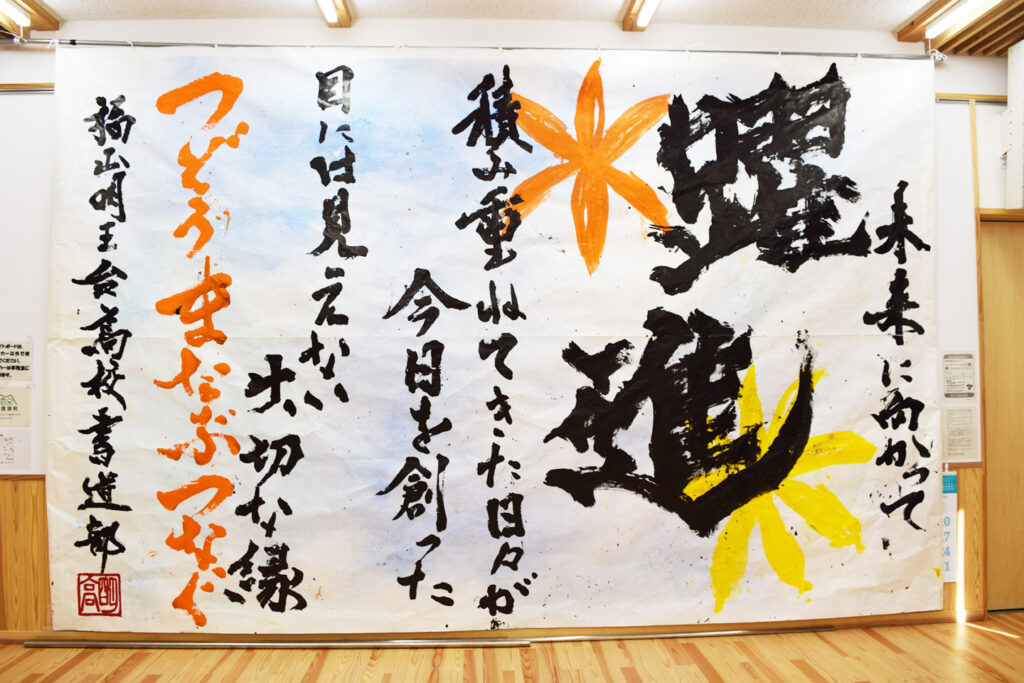 未来に向かって
躍進
積み重ねてきた日々が
今日を創った
目には見えない
大切な縁
つどう まなぶ つなぐ
福山明王台高校書道部
明高
0741